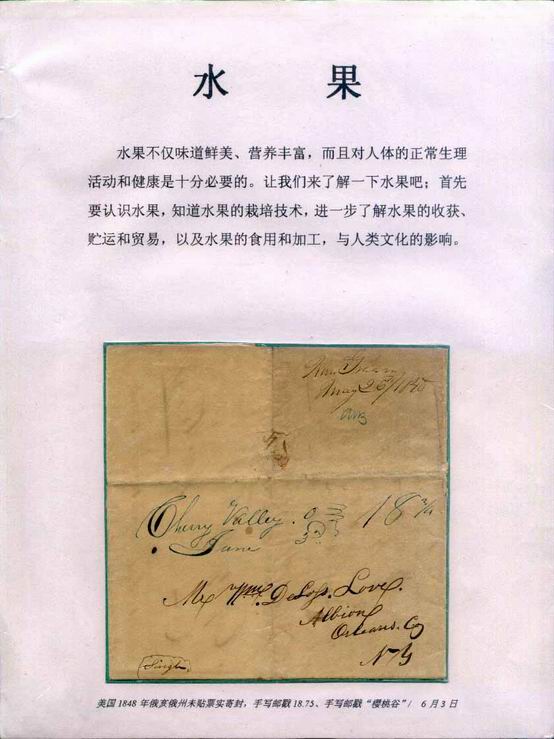 水 果
水果不仅味道鲜美、营养丰富，而且对人体的正常生理
活动和健康是十分必要的。让我们来了解一下水果吧；首先
要认识水果，知道水果的栽培技术，进一步了解水果的收获、
贮运和贸易，以及水果的食用和加工，与人类文化的影响。
May 28/184
Cherry Valley. O 18 3/4
3 June
Mr Wm. DeLoss. Love.
Albion
Orleans. Co
N Y
Single
美国 1848 年俄亥俄州未贴票实寄封，手写邮戳 18.75、手写邮戳“樱桃谷”/ 6 月 3 日